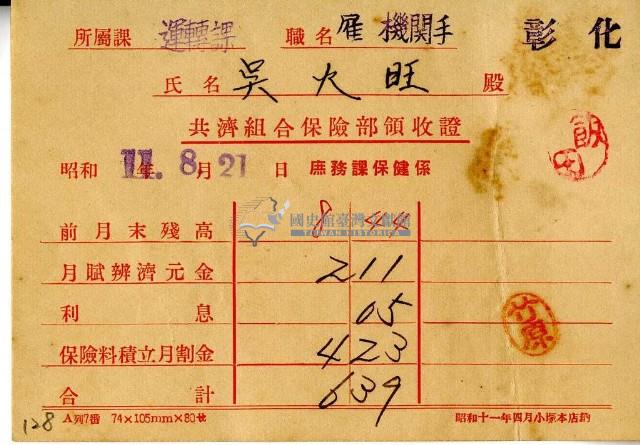 所屬課 運轉課 職名 雇 機関手 彰化
氏名 吳火旺 殿
共濟組合保險部領收證
昭和 11年 8月 21日 庶務課保健係
飯田
國史館臺灣文獻館
TAIWAN HISTORICA
前月末殘高 8 44
月賦辨濟元金 2 11
利息 05
竹原
保險料積立月割金 4 23
合計 6 39
128 A列7番 74×105mm×80セ 昭和十一年四月小塚本店納